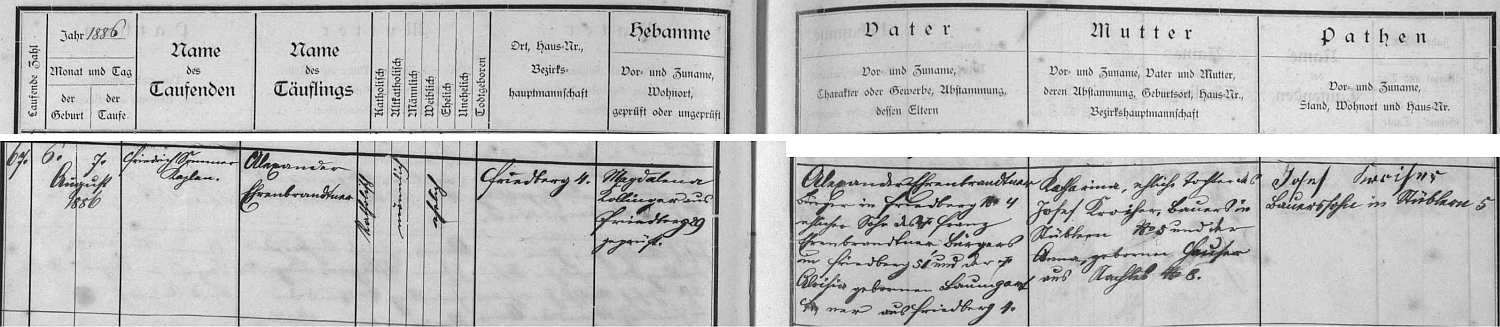 Laufende Zahl
Jahr 1886
Monat und Tag
der Geburt
der Taufe
Name
des
Taufenden
Name
des
Täuflings
Katholisch
Altkatholisch
Männlich
Weiblich
Ehelich
Unehelich
Todtgeboren
Ort, Haus-Nr.,
Bezirks-
hauptmannschaft
Hebamme
Vor- und Zuname,
Wohnort,
geprüft oder ungeprüft
Vater
Vor- und Zuname,
Charakter oder Gewerbe, Abstammung,
dessen Eltern
Mutter
Vor- und Zuname, Vater und Mutter,
deren Abstammung, Geburtsort, Haus-Nr.,
Bezirkshauptmannschaft
Pathen
Vor- und Zuname,
Stand, Wohnort und Haus-Nr.
67.
6. 7.
August
1886
Friedrich
Kaplan.
Alexander
Ehrenbrandtner
katholisch
männlich
ehelich
Friedberg 4.
Magdalena
Kollinger aus
Friedberg 29
geprüft.
Alexander Ehrenbrandtner
Bürger in Friedberg No 4
ehelicher Sohn des Franz
Ehrenbrandtner Bürgers
in Friedberg 51 und der
Aloisia gebornen Baumgart
ner aus Friedberg 4.
Katharina, eheliche Tochter des
Josef Kroiher, Bauers in
Stüblern No 5 und der
Anna, geborenen Hauser
aus Nachles No 8.
Josef Kroiher
Bauerssohn in Stüblern 5